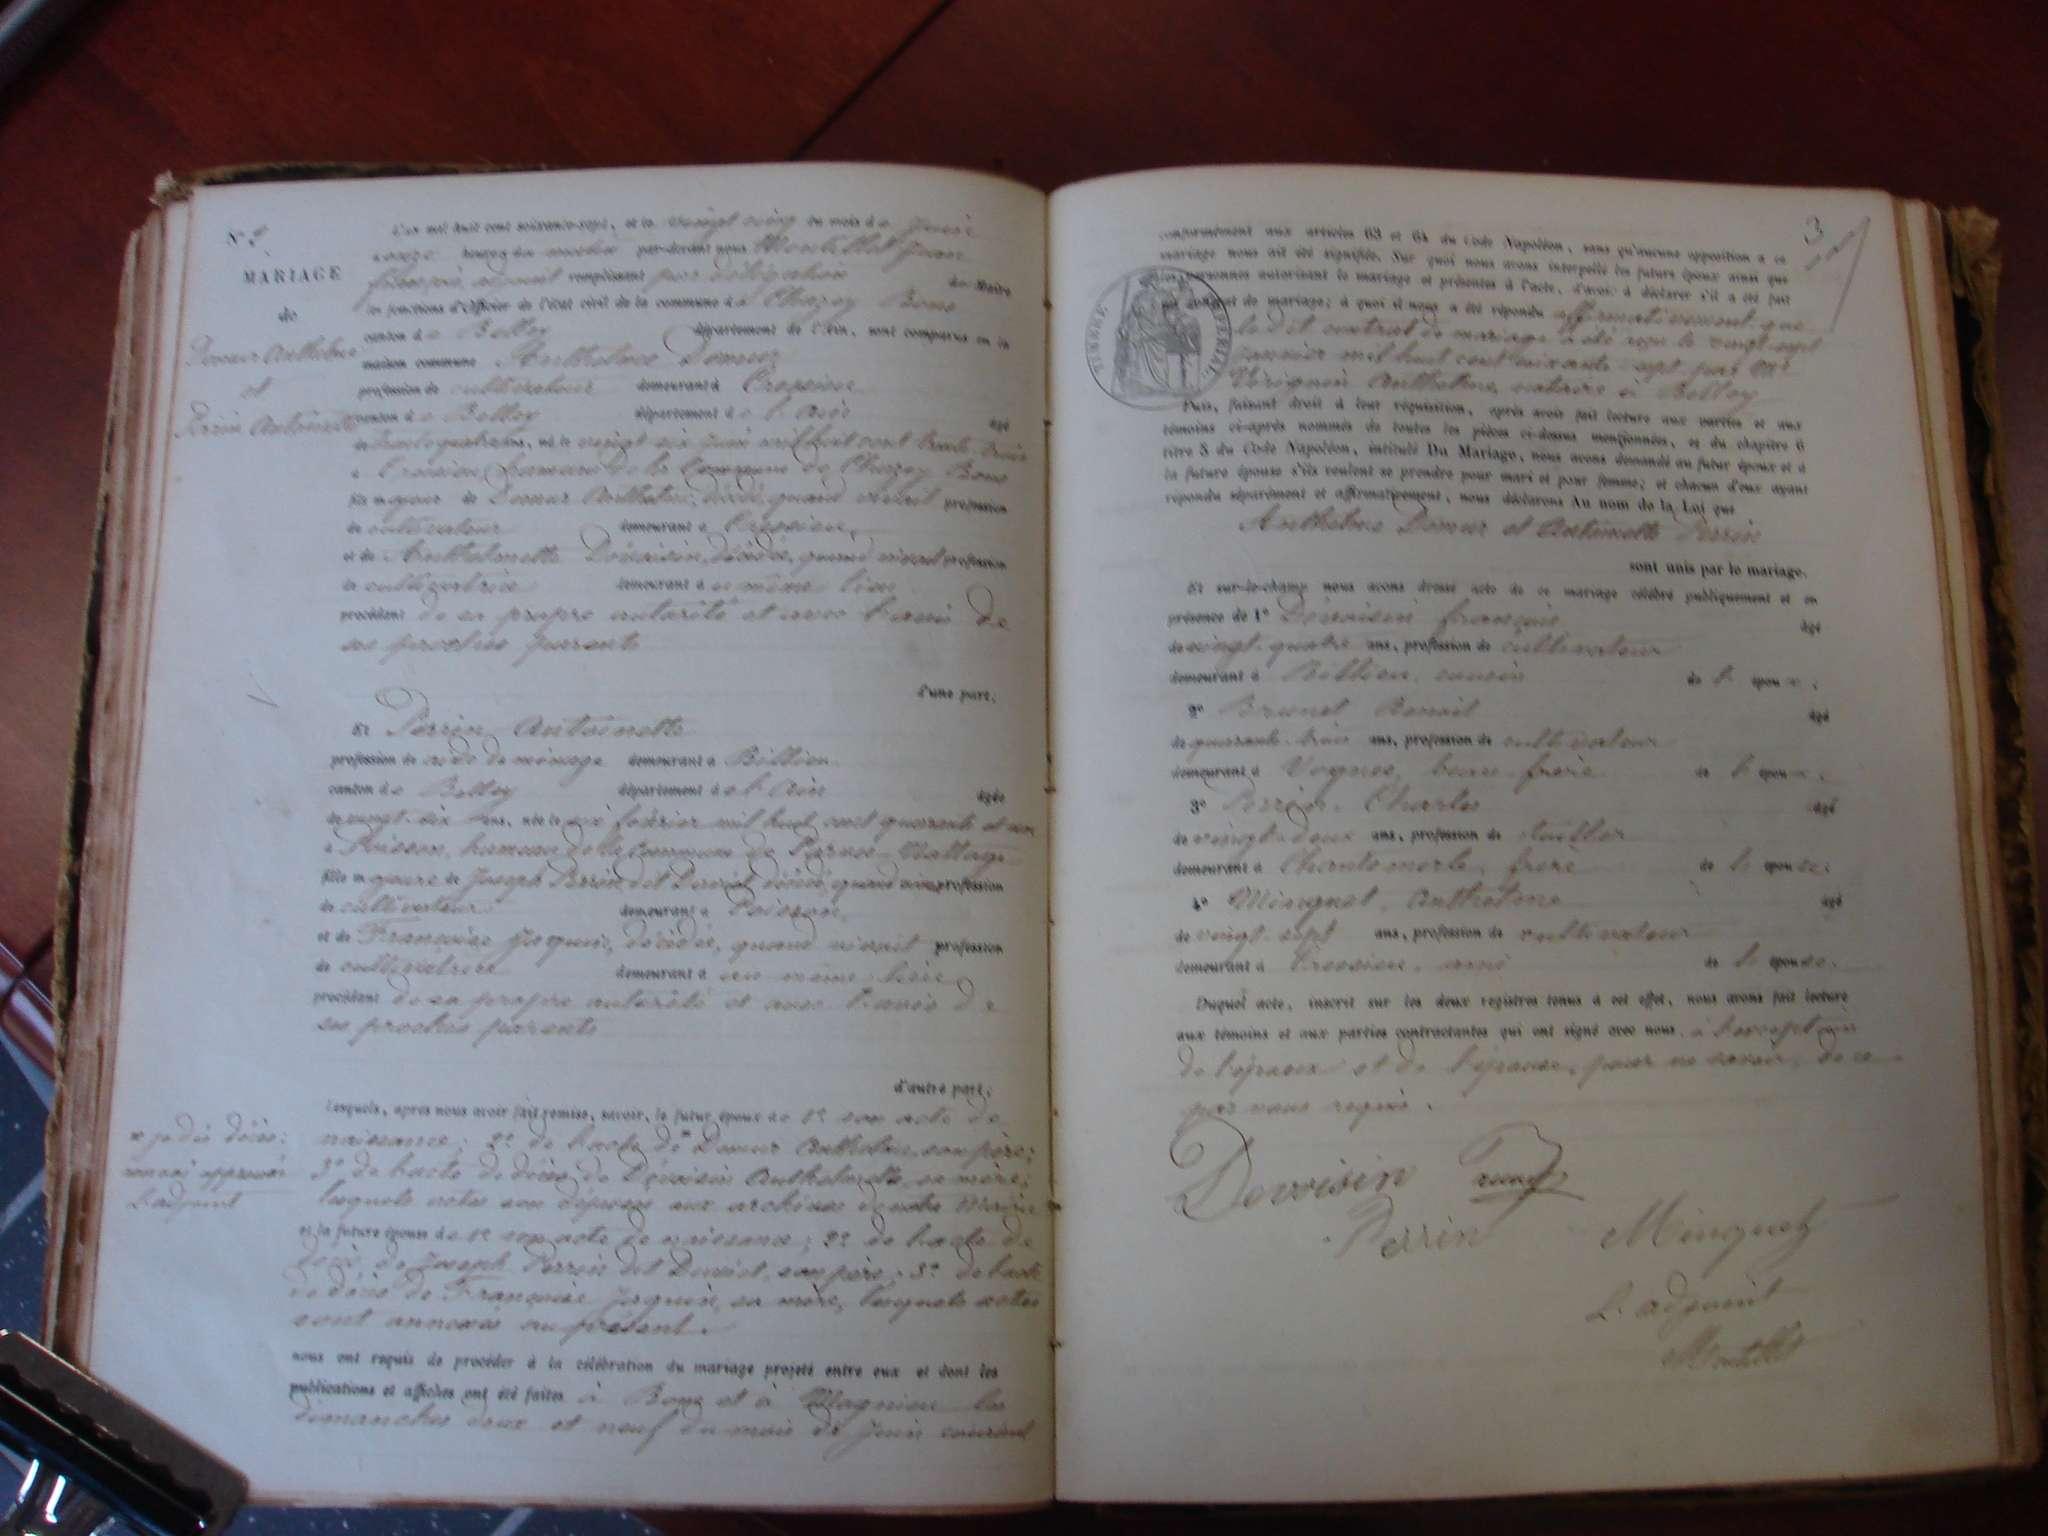 N°
MARIAGE
de
Domur Anthelme
et
Perrin Antoinette
L'an mil huit cent soixante-sept, et le vingt cinq du mois de Juin
onze heures du matin par-devant nous Montillet Jean
françois, adjoint remplissant par délégation du Maire
les fonctions d'Officier de l'état civil de la commune de Chazey Bons
canton de Belley département de l'Ain, sont comparus en la
maison commune Anthelme Domur
profession de cultivateur demeurant à Cressieu
canton de Belley département de l'Ain âgé
de trente quatre ans, né le vingt six Juin mil huit cent trente trois
à Cressieu, hameau de la Commune de Chazey Bons
fils majeur de Domur Anthelme, décédé, quand vivait profession
de cultivateur demeurant à Cressieu,
et de Anthelmette Dévoisin, décédée, quand vivait profession
de cultivatrice demeurant à u même lieu
procédant de sa propre autorité et avec l'avis de
ses proches parents
d'une part,
Et Perrin Antoinette
profession de aide de ménage demeurant à Billieu
canton de Belley département de l'Ain âgée
de vingt-six ans, née le six février mil huit cent quarante et un
à Poisson, hameau de la Commune de
fille majeure de Joseph Perrin dit Derviet, décédé, quand vivait profession
de cultivateur demeurant à Poisson,
et de Françoise Jaquin, décédée, quand vivait profession
de cultivatrice demeurant à au même lieu
procédant de sa propre autorité et avec l'avis de
ses proches parents
d'autre part;
Lesquels, après nous avoir fait remise, savoir, le futur époux de 1° son acte de
naissance; 2° de l'acte de Domur Anthelme, son père;
3° de l'acte de décès de Dévoisin Anthelmette, sa mère;
lesquels actes son déposés aux archives de notre Mairie
et la future épouse de 1° son acte de naissance; 2° de l'acte de
décès de Joseph Perrin dit Derviet, son père; 3° de l'acte
de décès de Françoise Jaquin, sa mère, lesquels actes
sont annexés au présent.
x je dis décès:
renvoi approuvé
L'adjoint
nous ont requis de procéder à la célébration du mariage projeté entre eux et dont les
publications et affiches ont été faites à Bons et à Magnieu les
dimanches deux et neuf du mois de Juin courant
3
conformément aux articles 63 et 64 du Code Napoléon, sans qu'aucune opposition à ce
mariage nous ait été signifiée. Sur quoi nous avons interpellé les futurs époux ainsi que
les personnes autorisant le mariage et présentes à l'acte, d'avoir à déclarer s'il a été fait
un contrat de mariage; à quoi il nous a été répondu affirmativement que
le dit contrat de mariage a été reçu le vingt sept
janvier mil huit cent soixante sept par Me
Anthelme, notaire à Belley
TIMBRE IMPÉRIAL
Puis, faisant droit à leur réquisition, après avoir fait lecture aux parties et aux
témoins ci-après nommés de toutes les pièces ci-dessus mentionnées, et du chapitre 6
titre 5 du Code Napoléon, intitulé Du Mariage, nous avons demandé au futur époux et à
la future épouse s'ils veulent se prendre pour mari et pour femme; et chacun d'eux ayant
répondu séparément et affirmativement, nous déclarons Au nom de la Loi que
Anthelme Domur et Antoinette Perrin
sont unis par le mariage.
Et sur-le-champ nous avons dressé acte de ce mariage célébré publiquement et en
présence de 1° Dévoisin françois âgé
de vingt-quatre ans, profession de cultivateur
demeurant à Billieu, cousin de l' époux;
2° Brunet Benoit âgé
de quarante-trois ans, profession de cultivateur
demeurant à Vognes, beau-frère de l' époux;
3° Perrin Charles âgé
de vingt-deux ans, profession de
demeurant à Chantemerle, frère de l' épouse;
4° Minguet, Anthelme âgé
de vingt-sept ans, profession de cultivateur
demeurant à Cressieu, ami de l' épouse.
Duquel acte, inscrit sur les deux registres tenus à cet effet, nous avons fait lecture
aux témoins et aux parties contractantes qui ont signé avec nous, à l'exception
de l'époux et de l'épouse, pour ne savoir, de ce
par nous requis.
Devoisin
Perrin Minguet
L'adjoint
Montillet